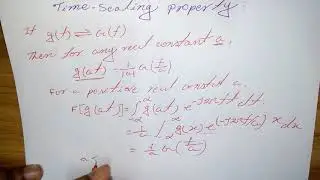 Time-Scaling property:
If g(t) ⇌ G(f)
Then for any real constant a,
g(at) ⇌ 1/|a| G(f/a)
for a positive real constant a.
F[g(at)] = ∫ g(at) e^-j2πft dt
= 1/a ∫ g(x) e
= 1/a G(f/a)